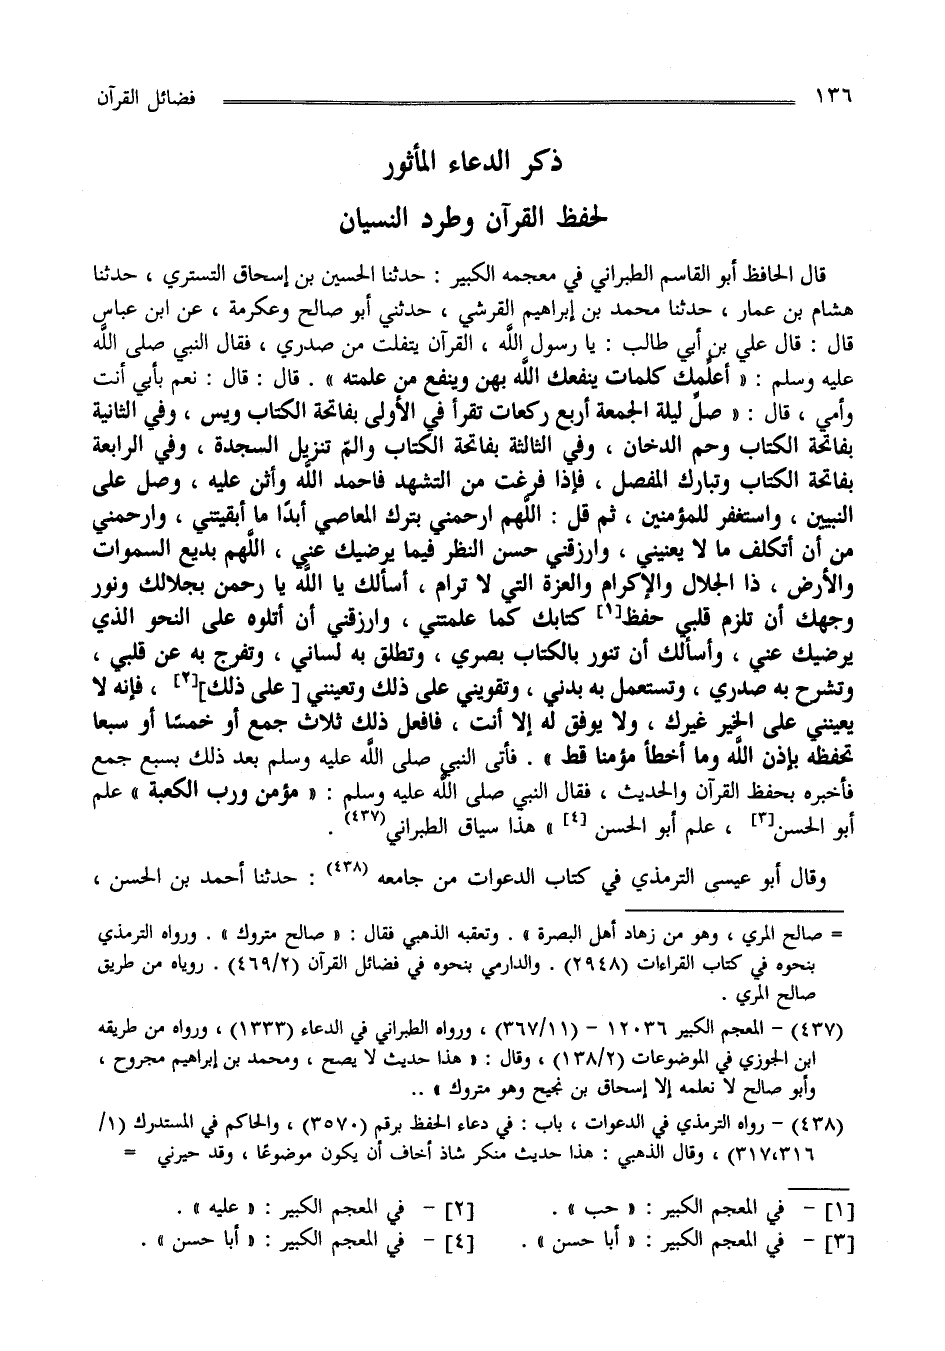 ١٣٦ فضائل القرآن
ذكر الدعاء المأثور
لحفظ القرآن وطرد النسيان
قال الحافظ أبو القاسم الطبراني في معجمه الكبير : حدثنا الحسين بن إسحاق التستري ، حدثنا
هشام بن عمار ، حدثنا محمد بن إبراهيم القرشي ، حدثني أبو صالح وعكرمة ، عن ابن عباس
قال : قال علي بن أبي طالب : يا رسول اللَّه ، القرآن يتفلت من صدري ، فقال النبي صلى اللَّه
عليه وسلم : « أعلِّمك كلمات ينفعك اللَّه بهن وينفع من علمته » . قال : قال : نعم بأبي أنت
وأمي ، قال : « صلِّ ليلة الجمعة أربع ركعات تقرأ في الأولى بفاتحة الكتاب ويس ، وفي الثانية
بفاتحة الكتاب وحم الدخان ، وفي الثالثة بفاتحة الكتاب والمّ تنزيل السجدة ، وفي الرابعة
بفاتحة الكتاب وتبارك المفصل ، فإذا فرغت من التشهد فاحمد اللَّه وأثن عليه ، وصل على
النبيين ، واستغفر للمؤمنين ، ثم قل : اللَّهم ارحمني بترك المعاصي أبدًا ما أبقيتني ، وارحمني
من أن أتكلف ما لا يعنيني ، وارزقني حسن النظر فيما يرضيك عني ، اللَّهم بديع السموات
والأرض ، ذا الجلال والإكرام والعزة التي لا ترام ، أسألك يا اللَّه يا رحمن بجلالك ونور
وجهك أن تلزم قلبي حفظ[١] كتابك كما علمتني ، وارزقني أن أتلوه على النحو الذي
يرضيك عني ، وأسألك أن تنور بالكتاب بصري ، وتطلق به لساني ، وتفرج به عن قلبي ،
وتشرح به صدري ، وتستعمل به بدني ، وتقويني على ذلك وتعينني [ على ذلك][٢] ، فإنه لا
يعينني على الخير غيرك ، ولا يوفق له إلا أنت ، فافعل ذلك ثلاث جمع أو خمسًا أو سبعا
تحفظه بإذن اللَّه وما أخطأ مؤمنا قط » . فأتى النبي صلى اللَّه عليه وسلم بعد ذلك بسبع جمع
فأخبره بحفظ القرآن والحديث ، فقال النبي صلى اللَّه عليه وسلم : « مؤمن ورب الكعبة » علم
أبو الحسن[٣] ، علم أبو الحسن [٤] » هذا سياق الطبراني(٤٣٧) .
وقال أبو عيسى الترمذي في كتاب الدعوات من جامعه (٤٣٨) : حدثنا أحمد بن الحسن ،
= صالح المري ، وهو من زهاد أهل البصرة » . وتعقبه الذهبي فقال : « صالح متروك » . ورواه الترمذي
بنحوه في كتاب القراءات (٢٩٤٨) . والدارمي بنحوه في فضائل القرآن (٤٦٩/٢) . روياه من طريق
صالح المري .
(٤٣٧) – المعجم الكبير ١٢٠٣٦ – (٣٦٧/١١) ، ورواه الطبراني في الدعاء (١٣٣٣) ، ورواه من طريقه
ابن الجوزي في الموضوعات (١٣٨/٢) ، وقال : « هذا حديث لا يصح ، ومحمد بن إبراهيم مجروح ،
وأبو صالح لا نعلمه إلا إسحاق بن نجيح وهو متروك » ..
(٤٣٨) – رواه الترمذي في الدعوات ، باب : في دعاء الحفظ برقم (٣٥٧٠) ، والحاكم في المستدرك (١/
٣١٧،٣١٦) ، وقال الذهبي : هذا حديث منكر شاذ أخاف أن يكون موضوعًا ، وقد حيرني =
[١] – في المعجم الكبير : « حب » . [٢] – في المعجم الكبير : « عليه » .
[٣] – في المعجم الكبير : « أبا حسن » . [٤] – في المعجم الكبير : « أبا حسن » .